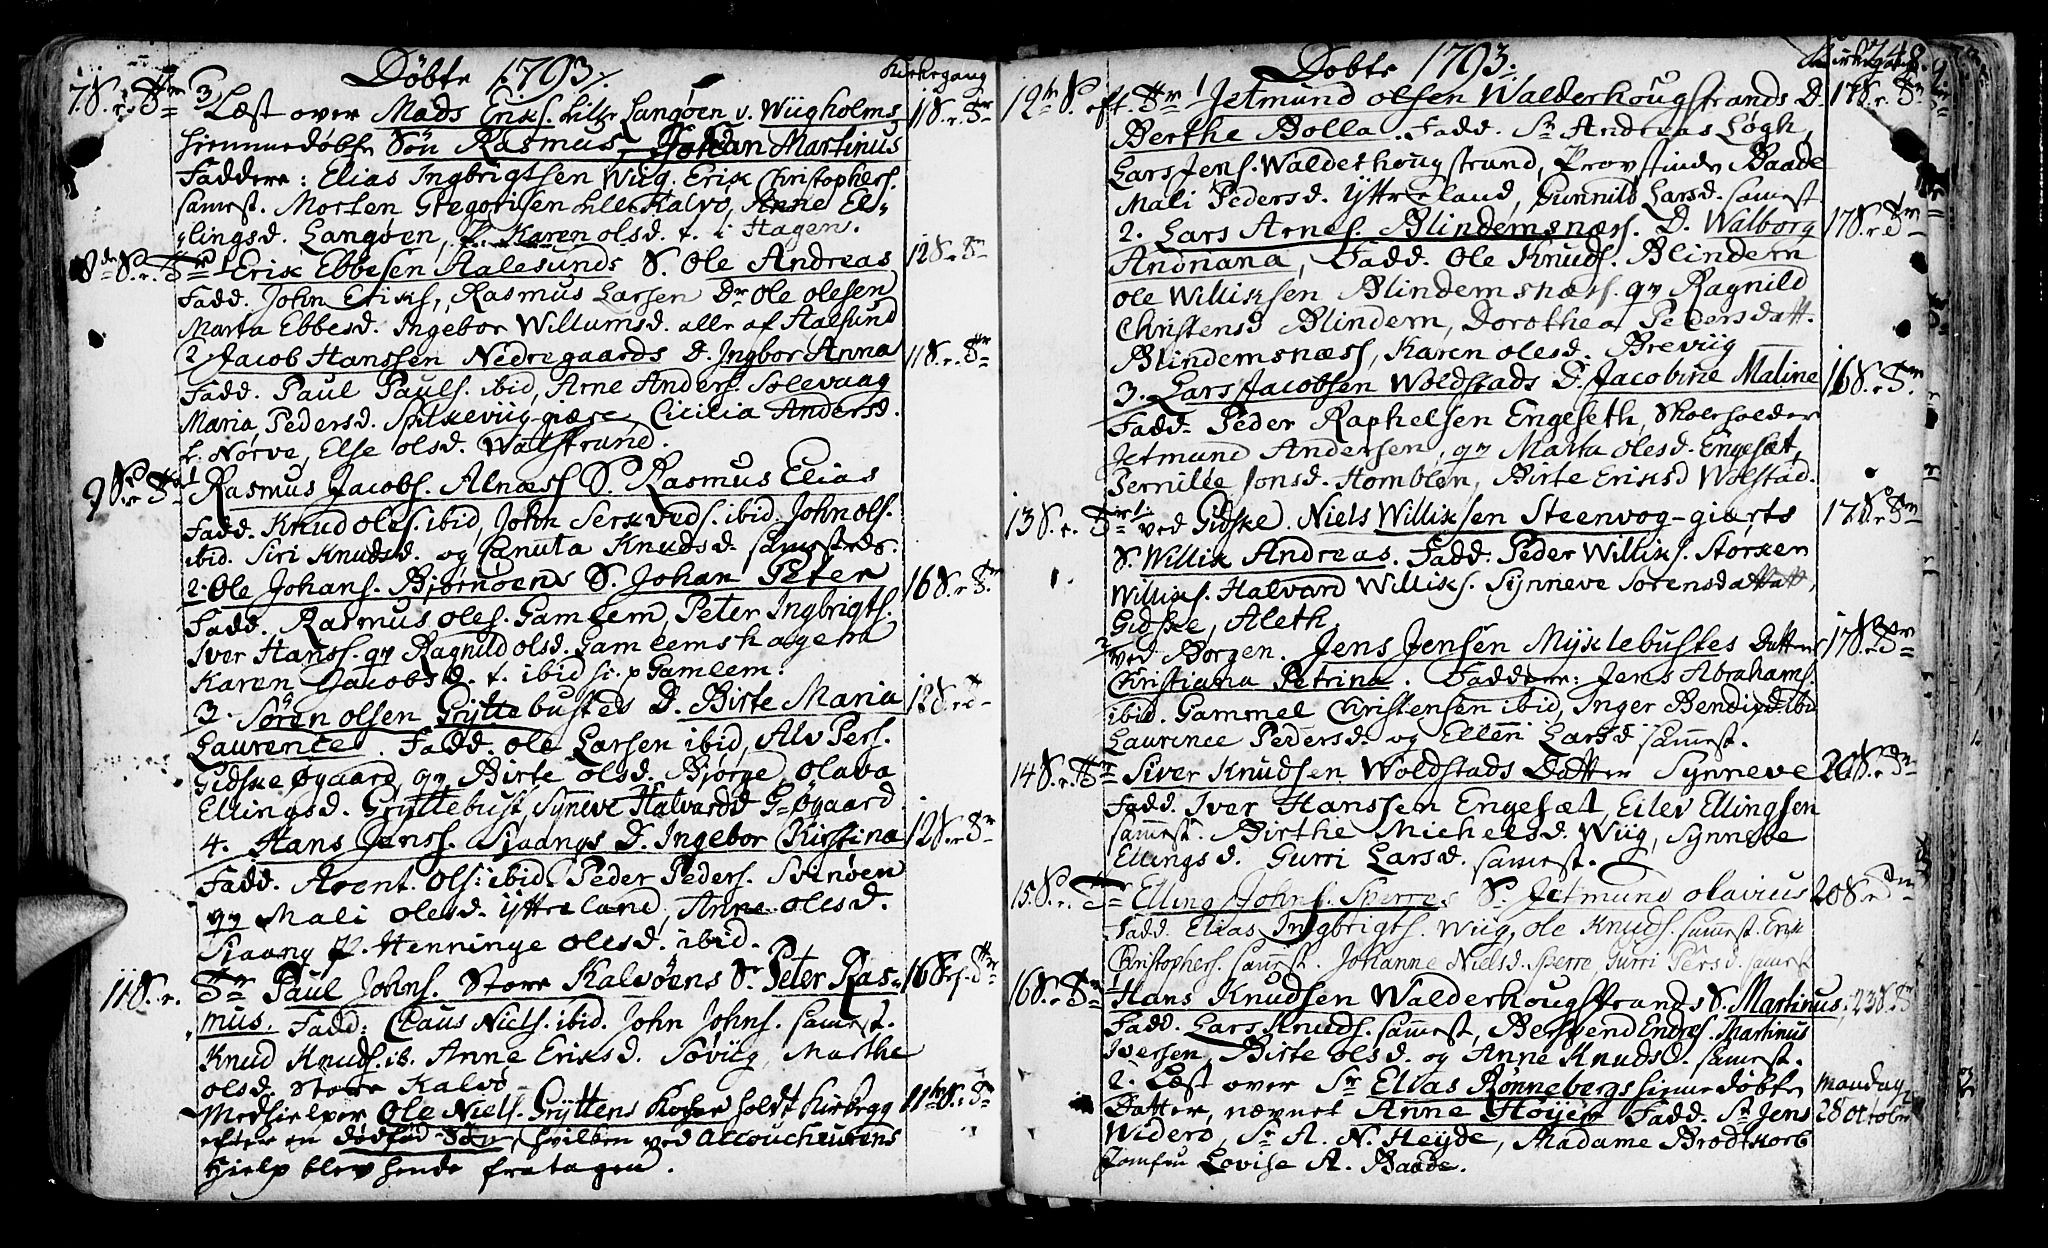 Döbte 1793.
Kirkegang
7. S. r. Tr. 3 Læst over Mads Eriks. Lille Langöen v. Wiigholms 11 S. r. Tr.
hiemmedöbte Sön Rasmus, Johan Martinus
Faddere: Elias Ingbrigtsen Wiig. Erik Christophers.
samest. Morten Gregorisen Lille Kalvö, Anne El-
lingsd. Langöen, Karen olsd. t. i Hagen.
8de S. r. Tr. 1 Erik Ebbesen Aalesunds S. Ole Andreas 12 S. Tr.
Fadd. John Eriks., Rasmus Larsen Dr. Ole olesen
Marta Ebbesd. Ingebor Willumsd. alle af Aalsund
2 Jacob Hanssen Nedregaards D. Ingbor Anna 11 S. r. Tr.
Fadd. Paul Pauls. ibid, Arne Anders. Solevaag
Maria Pedersd. Spilkeviig Cicilia Andersd.
t. Nörve, Else olsd. Walstrand.
9 S. r. Tr. 1 Rasmus Jacobs. Alnæss S. Rasmus Elias
Fadd. Knud oles. ibid, John Serkveds. ibid John ols.
ibid. Siri Knudsd. og Canuta Knudsd. samesteds.
2. Ole Johans. Bjornöens S. Johan Peter 16 S. r. Tr.
Fadd. Rasmus oles. Gamlem, Peter Ingbrigts.
Iver Hanss. qv Ragnild olsd. Gamlemshagen
Karen Jacobsd. t. ibid p Gamlem.
3. Sören olsen Gryttebustes D. Birte Maria 12 S. r. Tr.
Laurence. Fadd. ole Larsen ibid, Alv Pers.
Gidske Øgaard, qv Birte olsd. Bjorge, olava
Ellingsd. Gryttebust, Syneve Halvardsd G-Øgaard
4. Hans Jenss. Sjaangs D. Ingebor Kirstina 12 S. r. Tr.
Fadd. Arent. Ols: ibid. Peder Peders. Svinöen
qv Mali olesd. ytterland, Anne olesd.
Sjaang P. Henninge olesd. ibid.
11 S. r. Tr. Paul Johns. Store Kalvöens S. Peter Ras- 16 S. r. Tr.
mus. Fadd: Claus Niels. ibid. John Johns. samest.
Knud Knuds. ib. Anne Eriksd. Söviig, Marthe
olsd. Store Kalvö
Medhielper Ole Niels. Gryttens Kone holdt Kirkegg 11te S. r. Tr.
efter en dödföd Sön, hvilken ved Accoucheurens
Hielp blev hende fratagen.
Döbte 1793.
Kirkegang 248.
12te S. eft. Tr. 1 Jetmund olsen Walderhougstrands D. 17 S. r. Tr.
Berthe Bolla. Fadd. Sr. Andreas Løgh,
Lars Jens. Walderhougstrand, Provstinde Baade
Mali Pedersd. Ytterland, Gunnild Larsd. samest
2. Lars Arnes. Blindemsnæss. D. Walborg 17 S. r. Tr.
Andriana, Fadd. Ole Knuds. Blindem
ole Williksen Blindemsnæss. qv Ragnild
Christensd Blindem, Dorothea Pedersdatt.
Blindemsnæss, Karen olesd. Breviig
3. Lars Jacobsen Woldstads D. Jacobine Maline 16 S. r. Tr.
Fadd. Peder Raphelsen Engeseth, Skoleholder
Jetmund Andersen, qv Marta olesd. Engesæt,
Pernille Jonsd. Homblen, Birte Eriksd Wolstad.
13 S. r. Tr. 1. ved Gidske. Niels Williksen Steenvog-giærts 17 S. r. Tr.
S. Willik Andreas. Fadd. Peder Williks. Storken
Williks. Halvard Williks. Synneve Sorensdatt,
Gidske, Aleth.
2 ved Borgen. Jens Jensen Myklebustes Datter 17 S. r. Tr.
Christiana Petrina. Faddere: Jens Abrahams.
ibid. Gammel Christensen ibid, Inger Bendixd ibid
Laurence Pedersd. og Ellen Larsd samest.
14 S. r. Tr. Siver Knudsen Woldstads Datter Synneve 20 S. r. Tr.
Fadd. Iver Hanssen Engesæt, Eilev Ellingsen
samest. Birthe Michelsd. Wiig, Synneve
Ellingsd. Gurri Larsd. samest.
15. S. r. Tr. Elling Johns. Sperres S. Jetmund olavius 20 S. r. Tr.
Fadd. Elias Ingbrigts. Wiig, ole Knuds. samest. Erik
Christophers. samest. Johanne Nielsd. Sperre, Gurri Persd. samest
16 S. r. Tr. Hans Knudsen Walderhougstrands S. Martinus. 23 S. Tr.
Fadd. Lars Knuds. samest, Bersvend Endres. Martinus
Iversen, Birte olsd. og Anne Knudsd. samest.
2. Læst over Sr Elias Rönnebergs hiemmedöbte Mandag
Datter, nævnet Anne Höyer Fadd. Sr Jens 28 October
Widerö, Sr A. N. Heyde, Madame Brodtkorb
Jomfru Lovise A. Baade.